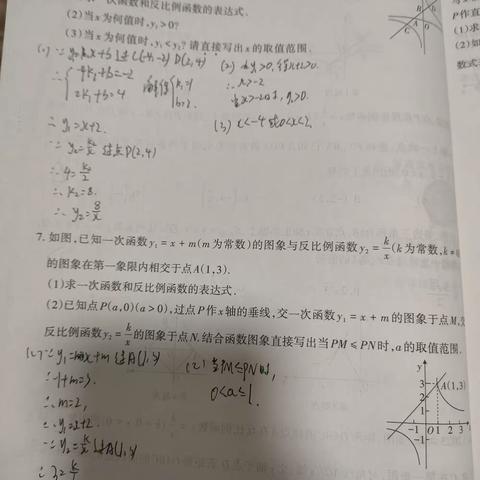 一次函数和反比例函数的表达式.
(2)当x为何值时,y₁>0?
(3)当x为何值时,y₁<y₂?请直接写出x的取值范围.
(1)∵y₁=k₁x+b过C(-4,-2) D(2,4)
{-4k₁+b=-2
2k₁+b=4
解得{k₁=1
b=2.
∴y₁=x+2.
∵y₂=k₂/x过点D(2,4)
∴4=k₂/2
∴k₂=8.
∴y₂=8/x
(2)当y₁>0,得x+2>0.
∴x>-2
当x>-2时,y₁>0.
(3)x<-4或0<x<2.
7.如图,已知一次函数y₁=x+m(m为常数)的图象与反比例函数y₂=k/x(k为常数,k≠
的图象在第一象限内相交于点A(1,3).
(1)求一次函数和反比例函数的表达式.
(2)已知点P(a,0)(a>0),过点P作x轴的垂线,交一次函数y₁=x+m的图象于点M,交
反比例函数y₂=k/x的图象于点N.结合函数图象直接写出当PM≤PN时,a的取值范围.
∵y₁=x+m过A(1,3)
∴1+m=3.
∴m=2,
∴y₁=x+2.
∵y₂=k/x过A(1,3)
∴3=k/1
(2)当PM≤PN时,
0<a≤1.
y
A(1,3)
3
2
1
-1
1 2 3
-1
P作直
(1)求
(2)如
数式
A
B
C